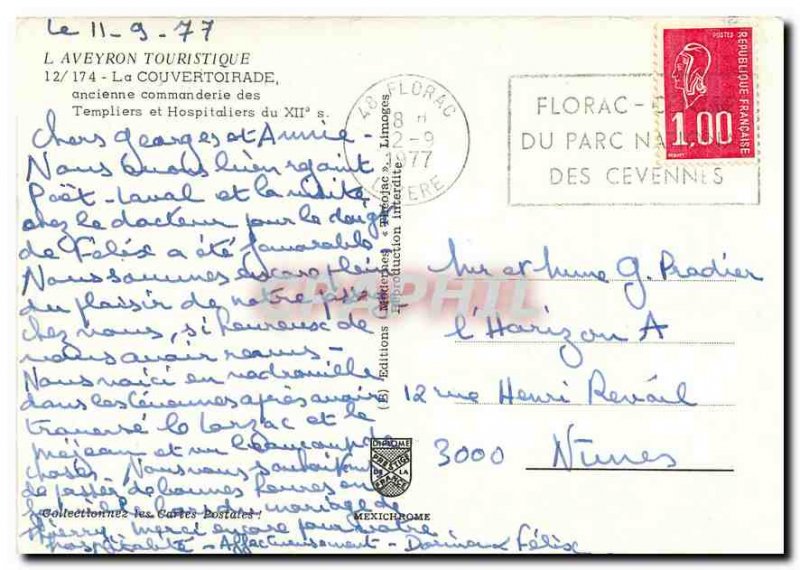 le 11-9-77
L AVEYRON TOURISTIQUE
12/174 - La COUVERTOIRADE,
ancienne commanderie des
Templiers et Hospitaliers du XIIº s.
Chers Georges et Annie -
Nous avons bien rejoint
Poët-Laval et la visite
chez le docteur pour le doigt
de Félix a été favorable
Nous sommes encore plein
du plaisir de notre passage
chez vous, si heureux de
vous avoir revus -
Nous voici en vadrouille
dans les Cévennes après avoir
traversé le Larzac et le
Méjean et vu beaucoup de
choses. Nous vous souhaitons
de passer de bonnes heures en
mariage de
Thierry. Merci encore pour votre
hospitalité - Affectueusement - Félix
Collectionnez les Cartes Postales !
(E) Editions Modernes « Théojac », Limoges
Reproduction interdite
48 FLORAC
18 H
12-9
1977
LOZERE
FLORAC -
DU PARC NA
DES CEVENNES
POSTES
REPUBLIQUE FRANÇAISE
1,00
Mr et Mme G. Pradier
l'Horizon A
12 rue Henri Revoil
3000 Nimes
DIPLOME
PRESTIGE
DE LA
FRANCE
MEXICHROME
PHIL